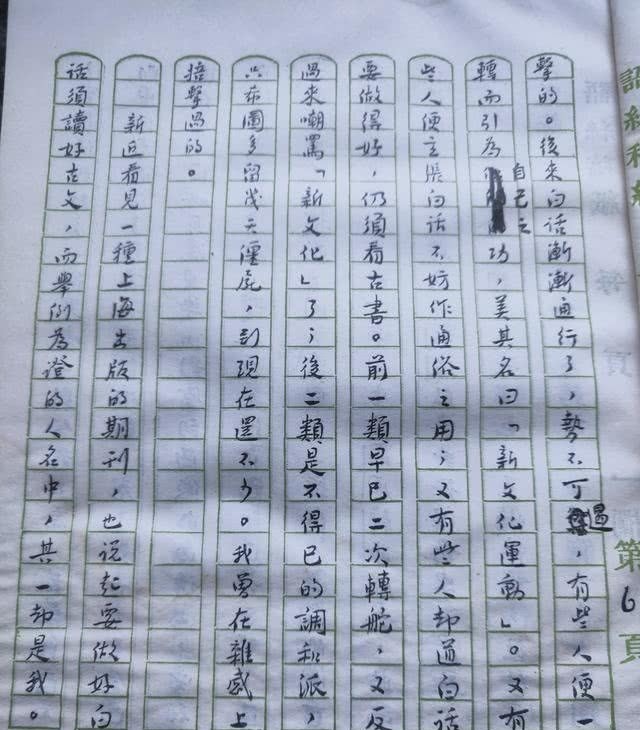 第6頁
擊的。後来白话漸漸通行了，勢不可遏，有些人便一
轉而引為自己之功，美其名曰「新文化運動」。又有
些人便主張白话不妨作通俗之用；又有些人却道白话
要做得好，仍須看古書。前一類早已二次轉舵，又反
過来嘲罵「新文化」了；後二類是不得已的調和派，
只希圖多留幾天僵屍，到現在還不少。我曾在雜感上
掊擊過的。
新近看見一種上海出版的期刊，也说起要做好白
话須讀好古文，而舉例為證的人名中，其一却是我。